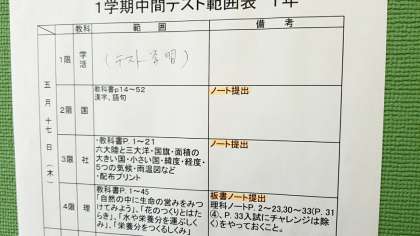 1学期中間テスト範囲表 1年
教科 範囲 備考
五月十七日(木)
1限 学活 (テスト学習)
2限 国 教科書p14~52 ノート提出
漢字、語句
3限 社 ・教科書P.1~21 ノート提出
六大陸と三大洋・国旗・面積の
大きい国・小さい国・緯度・経度・
5つの気候・雨温図など
・配布プリント
4限 理 教科書P.1~45 板書ノート提出
「自然の中に生命の営みをみつ 理科ノートP.2~23,30~33(P.31
けてみよう」、「花のつくりとはた ④、P.33入試にチャレンジは除
らき」、「水や栄養分を運ぶしく く)をやっておくこと。
み」、「栄養分をつくるしくみ」